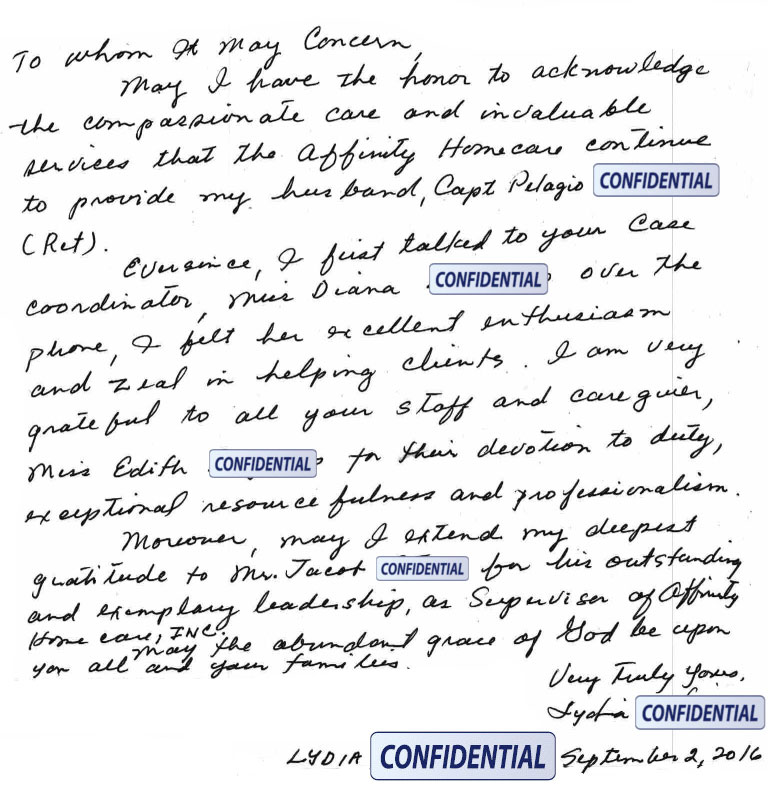 To whom It May Concern,
May I have the honor to acknowledge
the compassionate care and invaluable
services that the Affinity Homecare continue
to provide my husband, Capt Pelagio CONFIDENTIAL
(Ret).
Eversince, I first talked to your Case
coordinator, Miss Diana CONFIDENTIAL over the
phone, I felt her excellent enthusiasm
and zeal in helping clients. I am very
grateful to all your staff and caregiver,
Miss Edith CONFIDENTIAL for their devotion to duty,
exceptional resourcefulness and professionalism.
Moreover, may I extend my deepest
gratitude to Mr. Jacob CONFIDENTIAL for his outstanding
and exemplary leadership, as Supervisor of Affinity
Home care, INC.
May the abundant grace of God be upon
you all and your families.
Very Truly Yours,
Lydia CONFIDENTIAL
LYDIA CONFIDENTIAL September 2, 2016